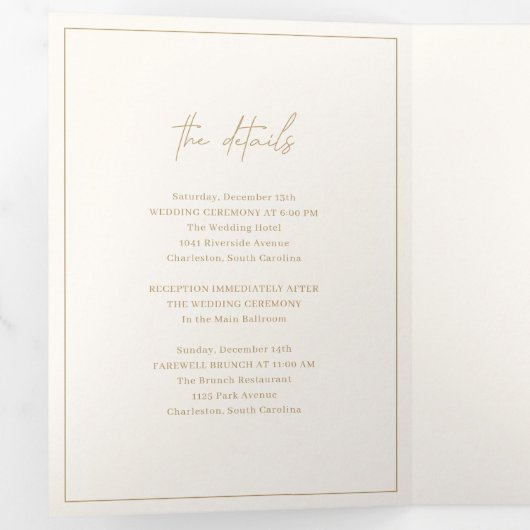 the details
Saturday, December 13th
WEDDING CEREMONY AT 6:00 PM
The Wedding Hotel
1041 Riverside Avenue
Charleston, South Carolina
RECEPTION IMMEDIATELY AFTER
THE WEDDING CEREMONY
In the Main Ballroom
Sunday, December 14th
FAREWELL BRUNCH AT 11:00 AM
The Brunch Restaurant
1125 Park Avenue
Charleston, South Carolina